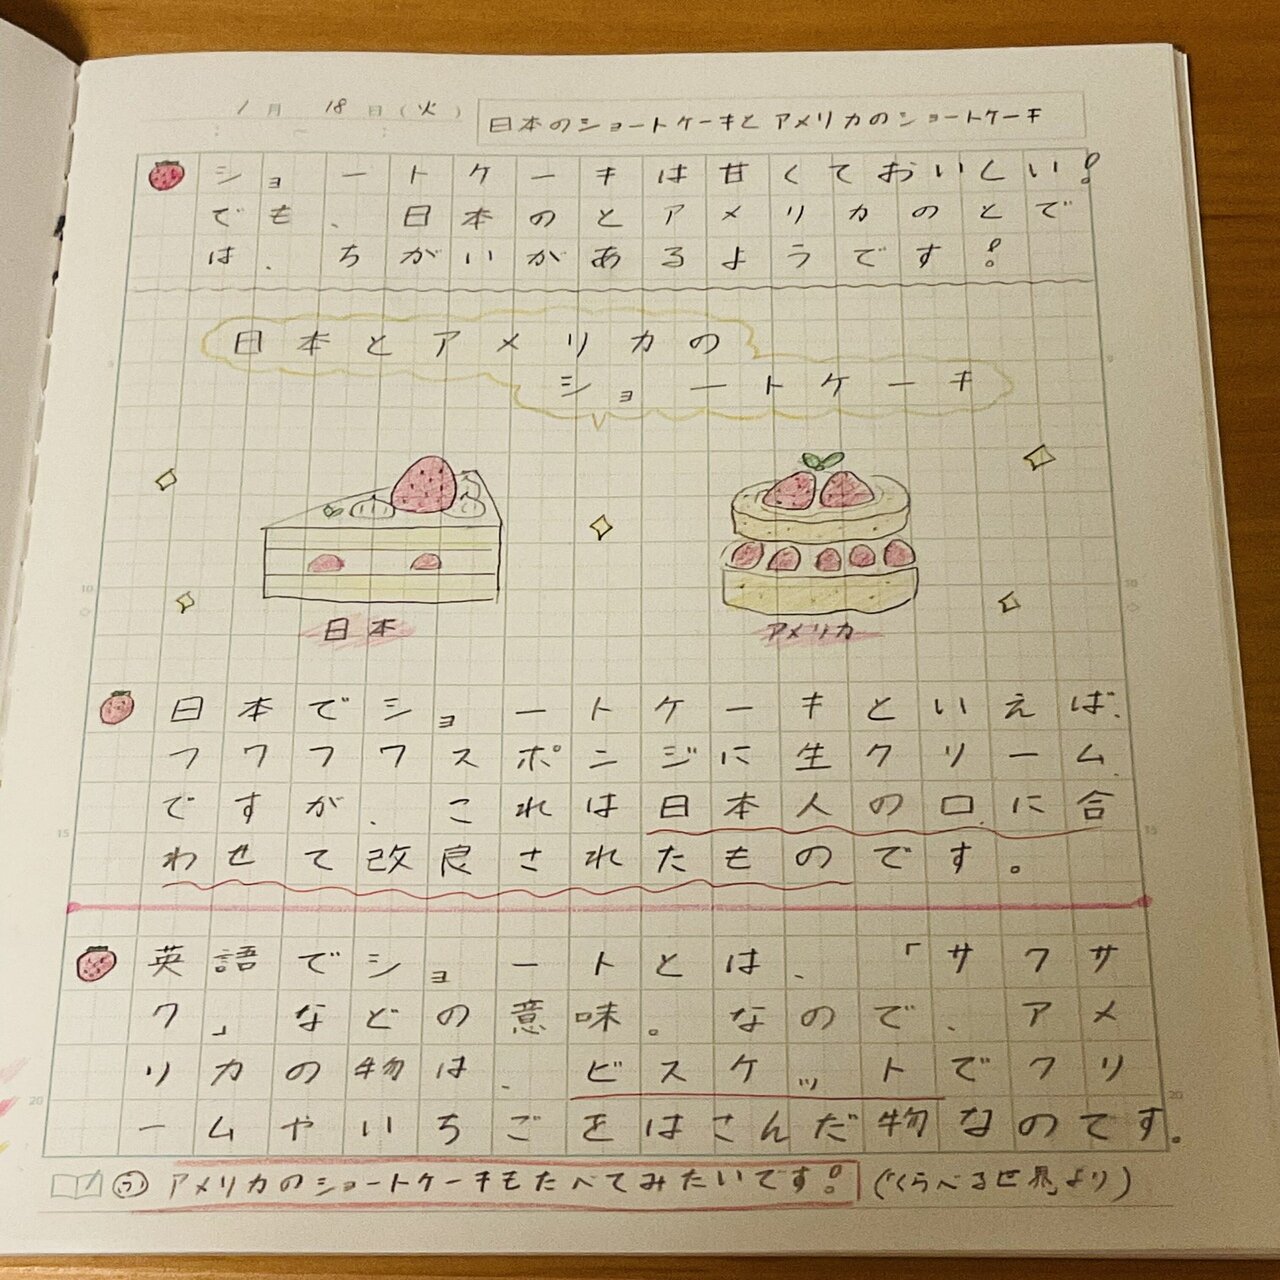 1月18日(火)
日本のショートケーキとアメリカのショートケーキ
ショートケーキは甘くておいしい!
でも、日本のとアメリカのとで
は、ちがいがあるようです!
日本とアメリカの
ショートケーキ
日本
アメリカ
日本でショートケーキといえば、
フワフワスポンジに生クリーム
ですが、これは日本人の口に合
わせて改良されたものです。
英語でショートとは、「サクサ
ク」などの意味。なので、アメ
リカの物は、ビスケットでクリ
ームやいちごをはさんだ物なのです。
アメリカのショートケーキもたべてみたいです!(「くらべる世界」より)
10
10
15
15
20
20